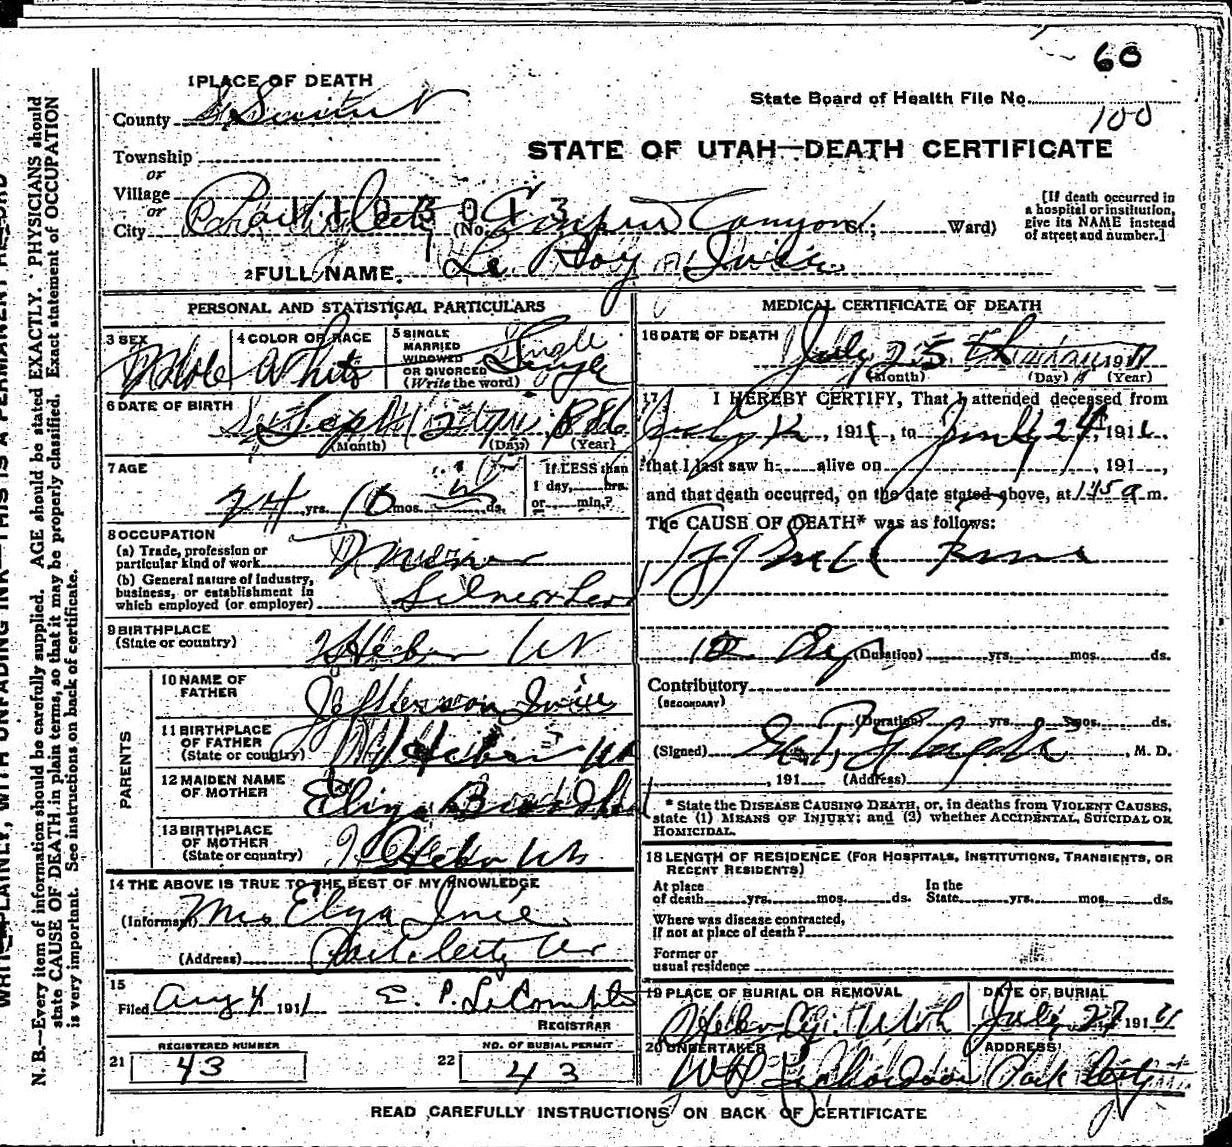 60
1 PLACE OF DEATH
State Board of Health File No.
100
County Summit
STATE OF UTAH—DEATH CERTIFICATE
Township
or
Village
or
City Park City (No. Empire Canyon St; Ward)
[If death occurred in
a hospital or institution,
give its NAME instead
of street and number.]
2 FULL NAME Le Roy
PERSONAL AND STATISTICAL PARTICULARS
3 SEX Male
4 COLOR OR RACE White
5 SINGLE
MARRIED
WIDOWED
OR DIVORCED
(Write the word) Single
6 DATE OF BIRTH Sept 1886
(Month) (Day) (Year)
7 AGE 24 yrs. 10 mos. ds.
If LESS than
1 day, hrs.
or min.?
8 OCCUPATION
(a) Trade, profession or
particular kind of work Miner
(b) General nature of industry,
business, or establishment in
which employed (or employer)
9 BIRTHPLACE
(State or country) Heber Ut
PARENTS
10 NAME OF
FATHER Jefferson
11 BIRTHPLACE
OF FATHER
(State or country) Heber Ut
12 MAIDEN NAME
OF MOTHER Eliza
13 BIRTHPLACE
OF MOTHER
(State or country) Heber Ut
14 THE ABOVE IS TRUE TO THE BEST OF MY KNOWLEDGE
(Informant) Mrs
(Address) Park City Ut
15
Filed Aug 4 1911 E. P. LeCompte
REGISTRAR
REGISTERED NUMBER
21 43
NO. OF BURIAL PERMIT
22 43
MEDICAL CERTIFICATE OF DEATH
16 DATE OF DEATH July 25 191
(Month) (Day) (Year)
17 I HEREBY CERTIFY, That I attended deceased from
July 12, 1911, to July 24, 1911.
that I last saw h alive on , 191 ,
and that death occurred, on the date stated above, at 145 a m.
The CAUSE OF DEATH* was as follows:
(Duration) yrs. mos. ds.
Contributory
(SECONDARY)
(Duration) yrs. mos. ds.
(Signed) , M. D.
, 191 (Address)
* State the DISEASE CAUSING DEATH, or, in deaths from VIOLENT CAUSES,
state (1) MEANS OF INJURY; and (2) whether ACCIDENTAL, SUICIDAL OR
HOMICIDAL.
18 LENGTH OF RESIDENCE (FOR HOSPITALS, INSTITUTIONS, TRANSIENTS, OR
RECENT RESIDENTS)
At place
of death yrs. mos. ds.
In the
State yrs. mos. ds.
Where was disease contracted,
if not at place of death?
Former or
usual residence
19 PLACE OF BURIAL OR REMOVAL
Heber City Utah
DATE OF BURIAL
July 27 1911
20 UNDERTAKER
ADDRESS
Park City
READ CAREFULLY INSTRUCTIONS ON BACK OF CERTIFICATE
WRITE PLAINLY, WITH UNFADING INK—THIS IS A PERMANENT RECORD
N. B.—Every item of information should be carefully supplied. AGE should be stated EXACTLY. PHYSICIANS should
state CAUSE OF DEATH in plain terms, so that it may be properly classified. Exact statement of OCCUPATION
is very important. See instructions on back of certificate.